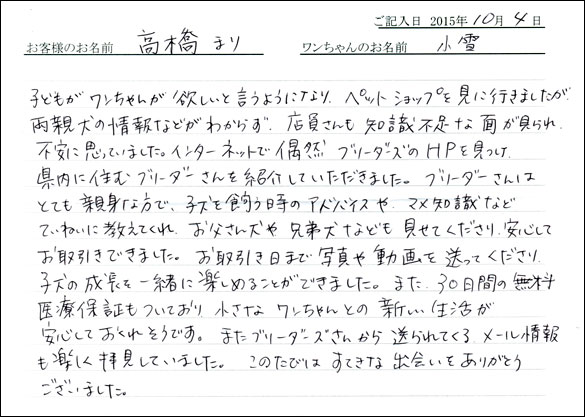 ご記入日 2015年 10月 4日
お客様のお名前 高橋 まり ワンちゃんのお名前 小雪
子どもが ワンちゃんが 欲しいと言うようになり、ペットショップを見に行きましたが、
両親犬の情報などがわからず、店員さんも 知識不足な面が見られ、
不安に思っていました。インターネットで偶然 ブリーダーズのHPを見つけ、
県内に住む ブリーダーさんを紹介していただきました。 ブリーダーさんは
とても 親身な方で、子犬を飼う時のアドバイスや、マメ知識など
ていねいに教えてくれ、お父さん犬や 兄弟犬なども 見せてくださり、安心して
お取引きできました。 お取引き日まで 写真や動画を送ってくださり、
子犬の成長を一緒に楽しめることができました。また、30日間の無料
医療保証もついており、小さな ワンちゃんとの 新しい生活が
安心しておくれそうです。 またブリーダーズさんから 送られてくる メール情報
も楽しく拝見していました。 このたびは すてきな出会いをありがとう
ございました。